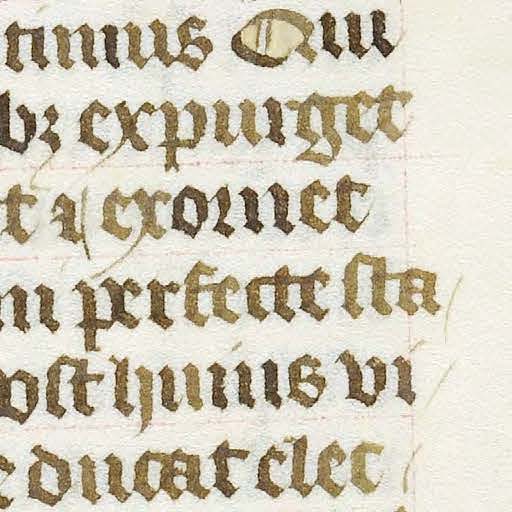 tinus Qui
bꝫ expurget
t ⁊ exornet
m perfecte sta
ost huius vi
e ducat elec